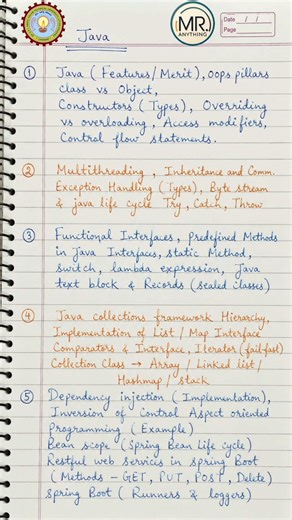 MR.
ANYTHING
Date / /
Page
Java
① Java (Features/Merit), OOPs pillars
Class vs Object,
Constructors (Types), Overriding
vs overloading, Access modifiers,
Control flow statements.
② Multithreading, Inheritance and Comm.
Exception Handling (Types), Byte stream
& java life cycle Try, Catch, Throw
③ Functional Interfaces, predefined Methods
in Java Interfaces, static Method,
switch, lambda expression, Java
text block & Records (sealed classes)
④ Java collections framework Hierarchy,
Implementation of List / Map Interface
Comparators & Interface, Iterator (failfast)
Collection Class → Array / Linked list /
Hashmap / stack
⑤ Dependency injection (Implementation),
Inversion of Control Aspect oriented
Programming (Example)
Bean scope (Spring Bean Life cycle)
Restful web services in spring Boot
(Methods - GET, PUT, POST, Delete)
Spring Boot (Runners & loggers)